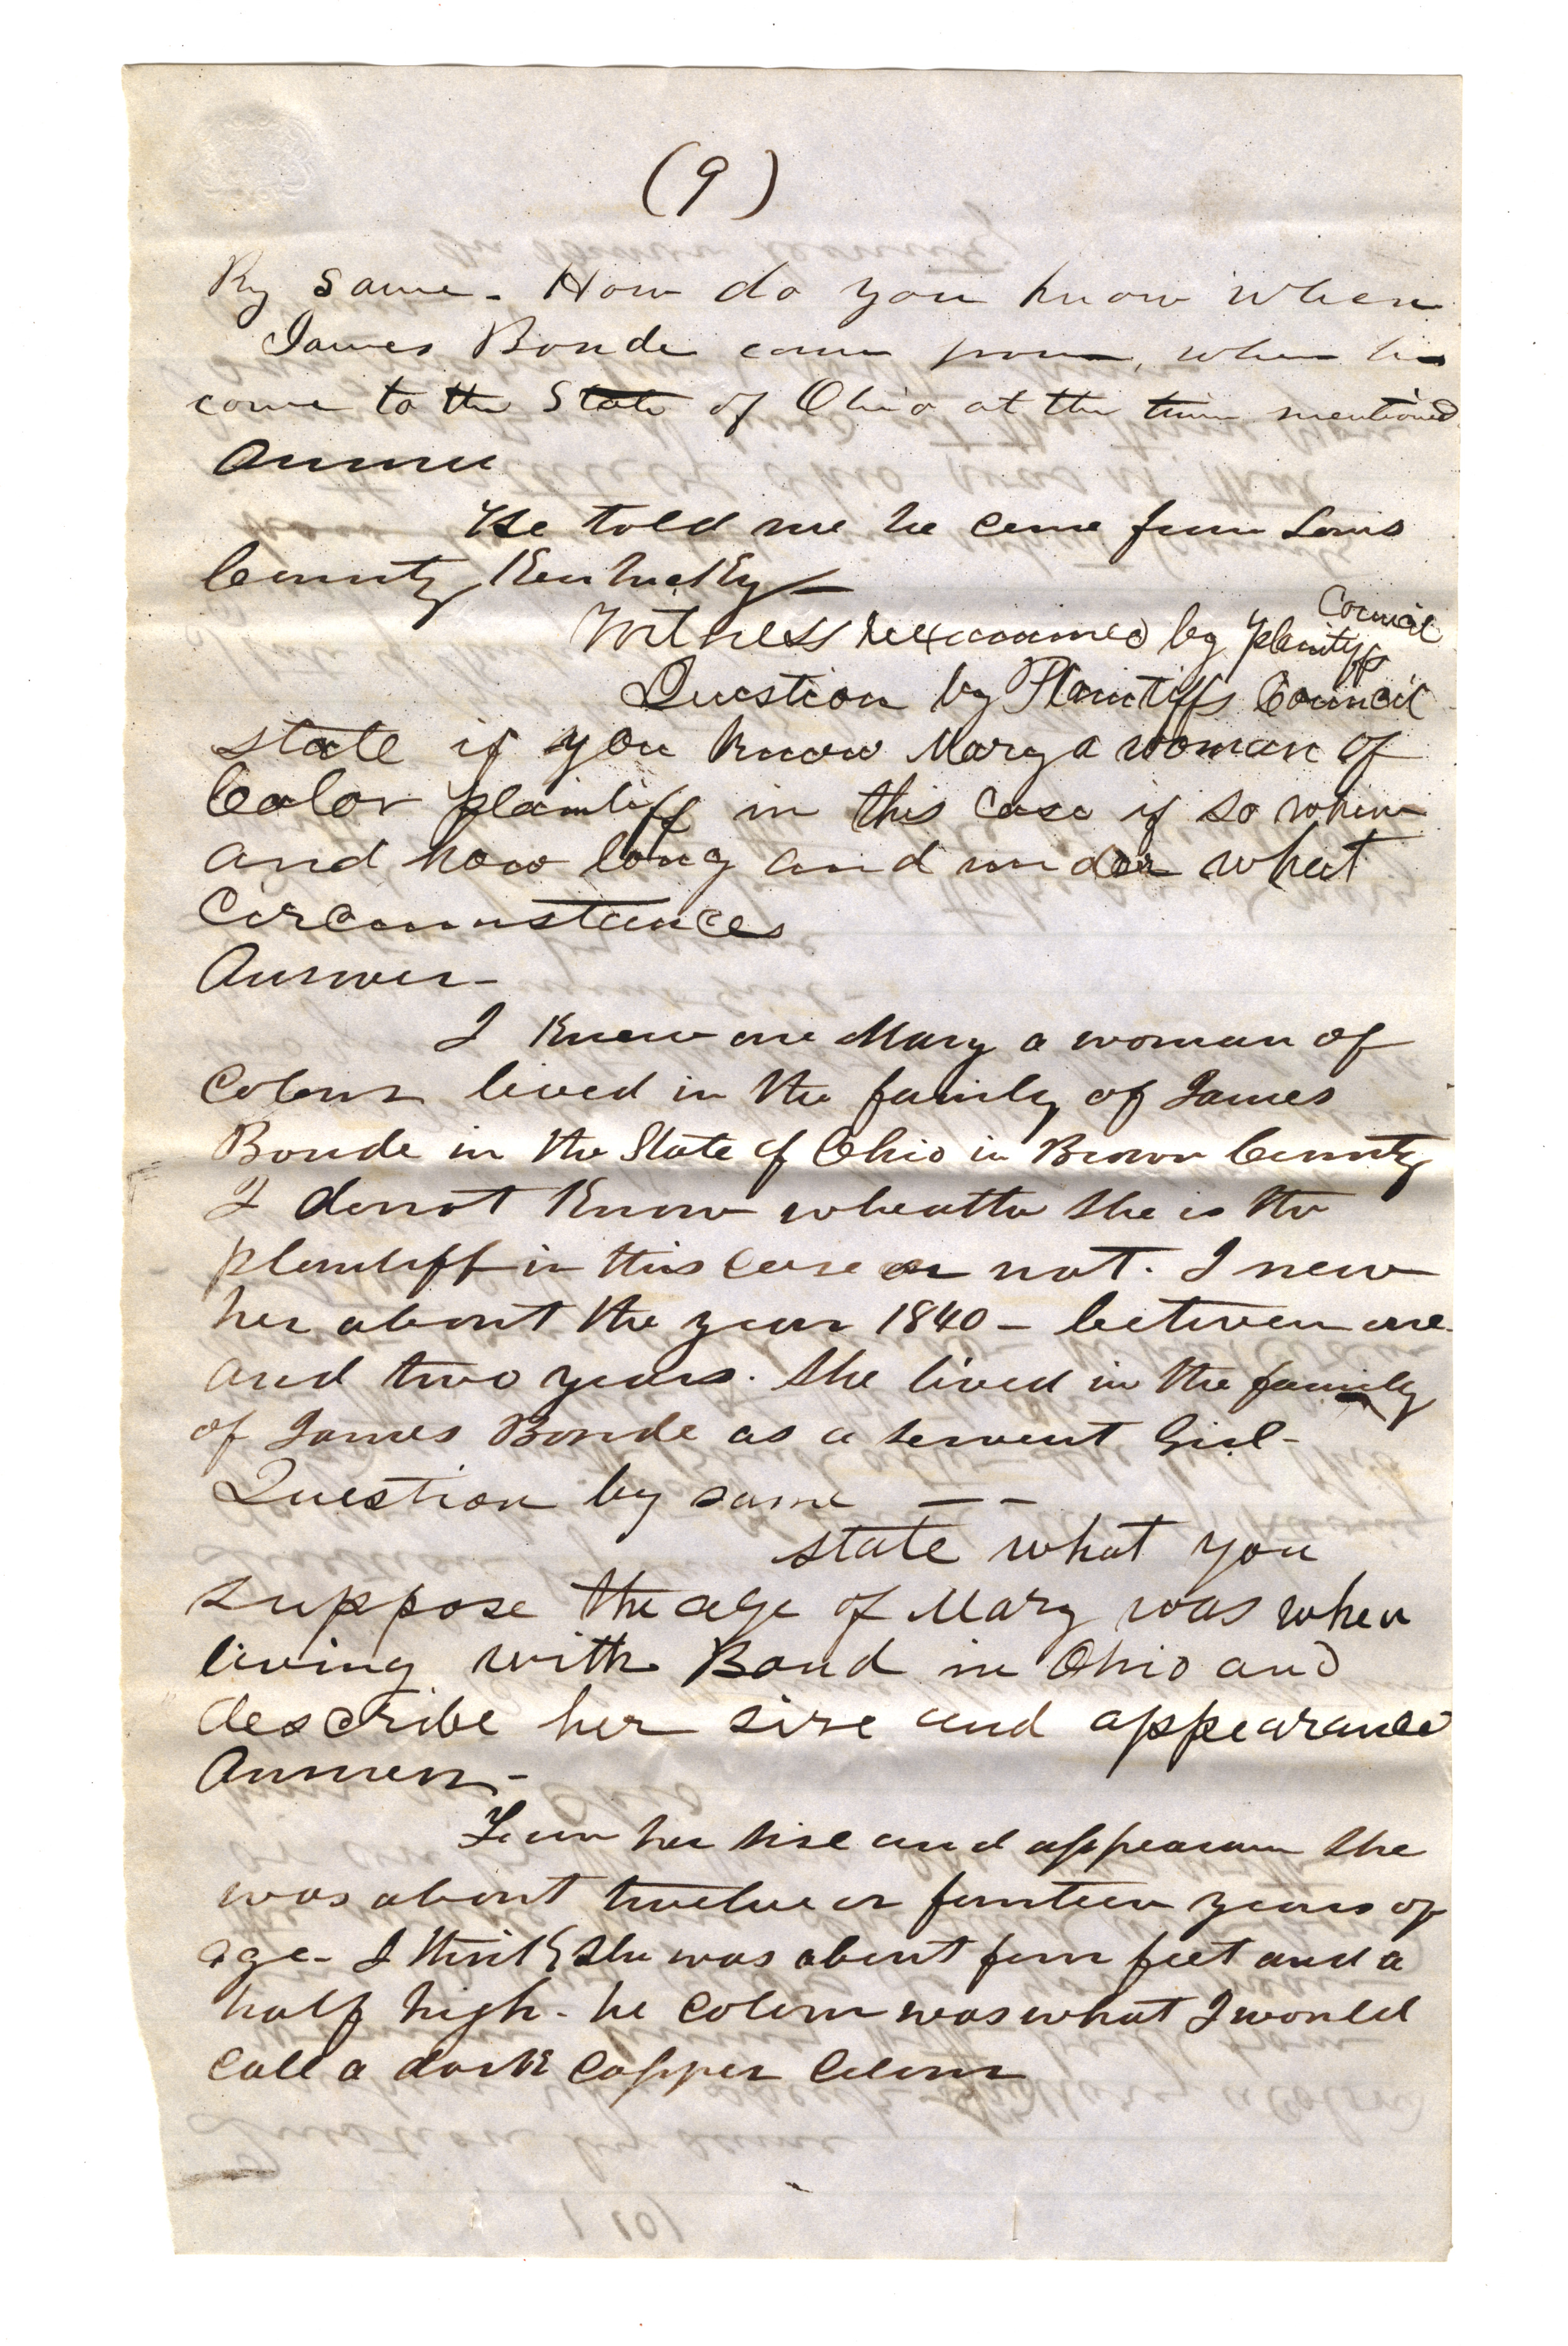 (9)
By same - How do you know when
James Bonde came from, when he
come to the State of Ohio at the time mentioned
Answer
He told me he came from Louis
County Kentucky -
Witness reexamined by plaintiffs Council
Question by Plaintiffs Council
state if you know Mary a woman of
Color plaintiff in this case if so when
and how long and under what
Circumstances
Answer -
I knew one Mary a woman of
Colour lived in the family of James
Bonde in the State of Ohio in Brown County
I donot know wheather she is the
plaintiff in this case or not. I new
her about the year 1840 - between one
and two years. She lived in the family
of James Bonde as a servent Girl -
Question by same - -
state what you
suppose the age of Mary was when
living with Bond in Ohio and
describe her sise and appearance
Answer -
From her sise and appearance she
was about twelve or fourteen years of
age - I think she was about four feet and a
half high - he colour was what I would
call a dark Copper Colour